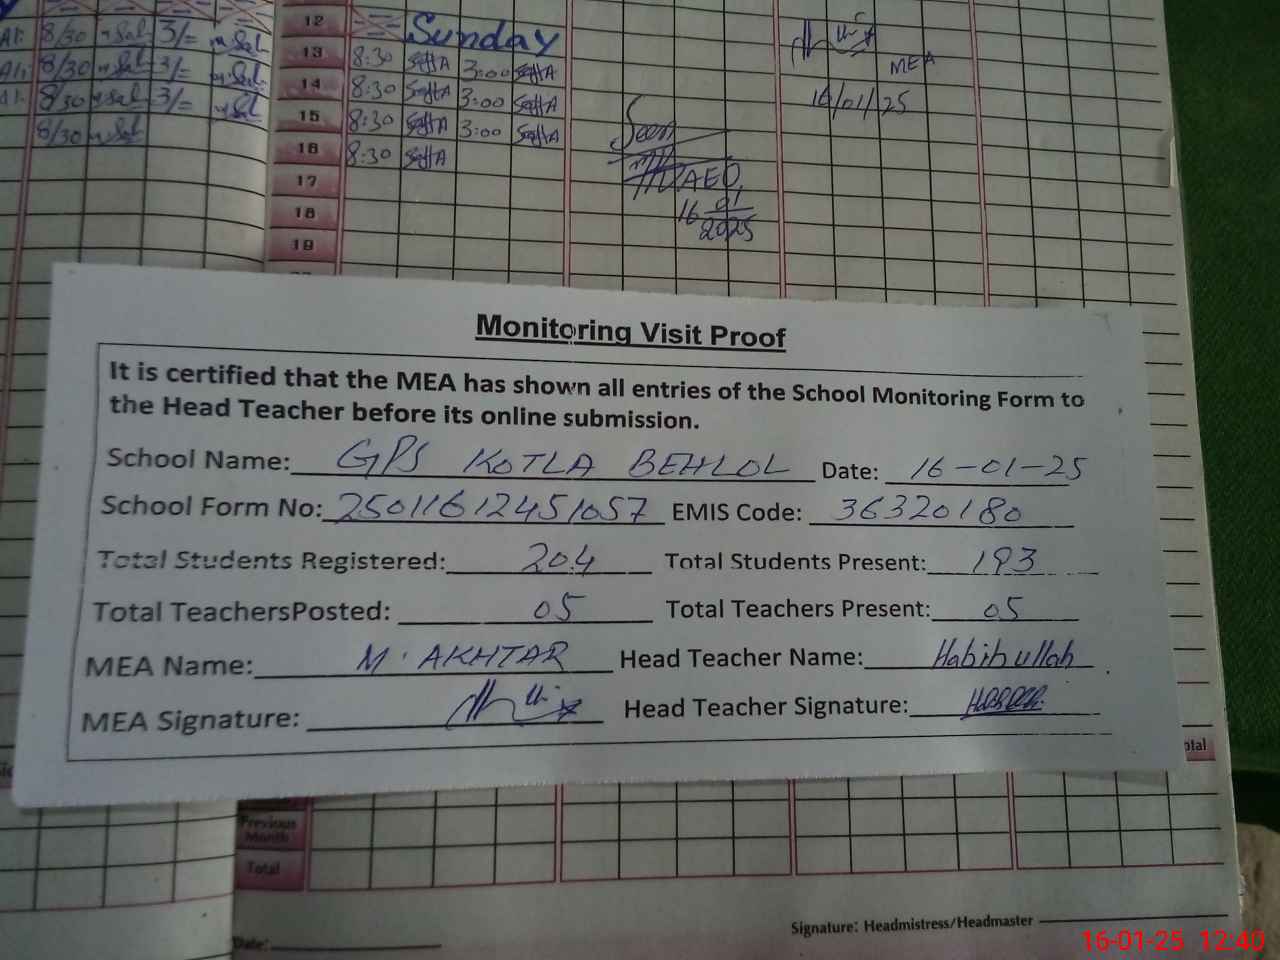 12 Sunday
13 8:30 3:00
14 8:30 3:00
15 8:30 3:00
16 8:30
17
18
19
8/30 3/=
8/30 3/=
8/30 3/=
8/30
MEA
16/01/25
Seen
AEO
16 01 2025
Monitoring Visit Proof
It is certified that the MEA has shown all entries of the School Monitoring Form to
the Head Teacher before its online submission.
School Name: GPS KOTLA BEHLOL Date: 16-01-25
School Form No: 25011612451057 EMIS Code: 36320180
Total Students Registered: 204 Total Students Present: 193
Total TeachersPosted: 05 Total Teachers Present: 05
MEA Name: M. AKHTAR Head Teacher Name: Habibullah
MEA Signature: Head Teacher Signature:
otal
Previous
Month
Total
Signature: Headmistress/Headmaster
Date:
16-01-25 12:40